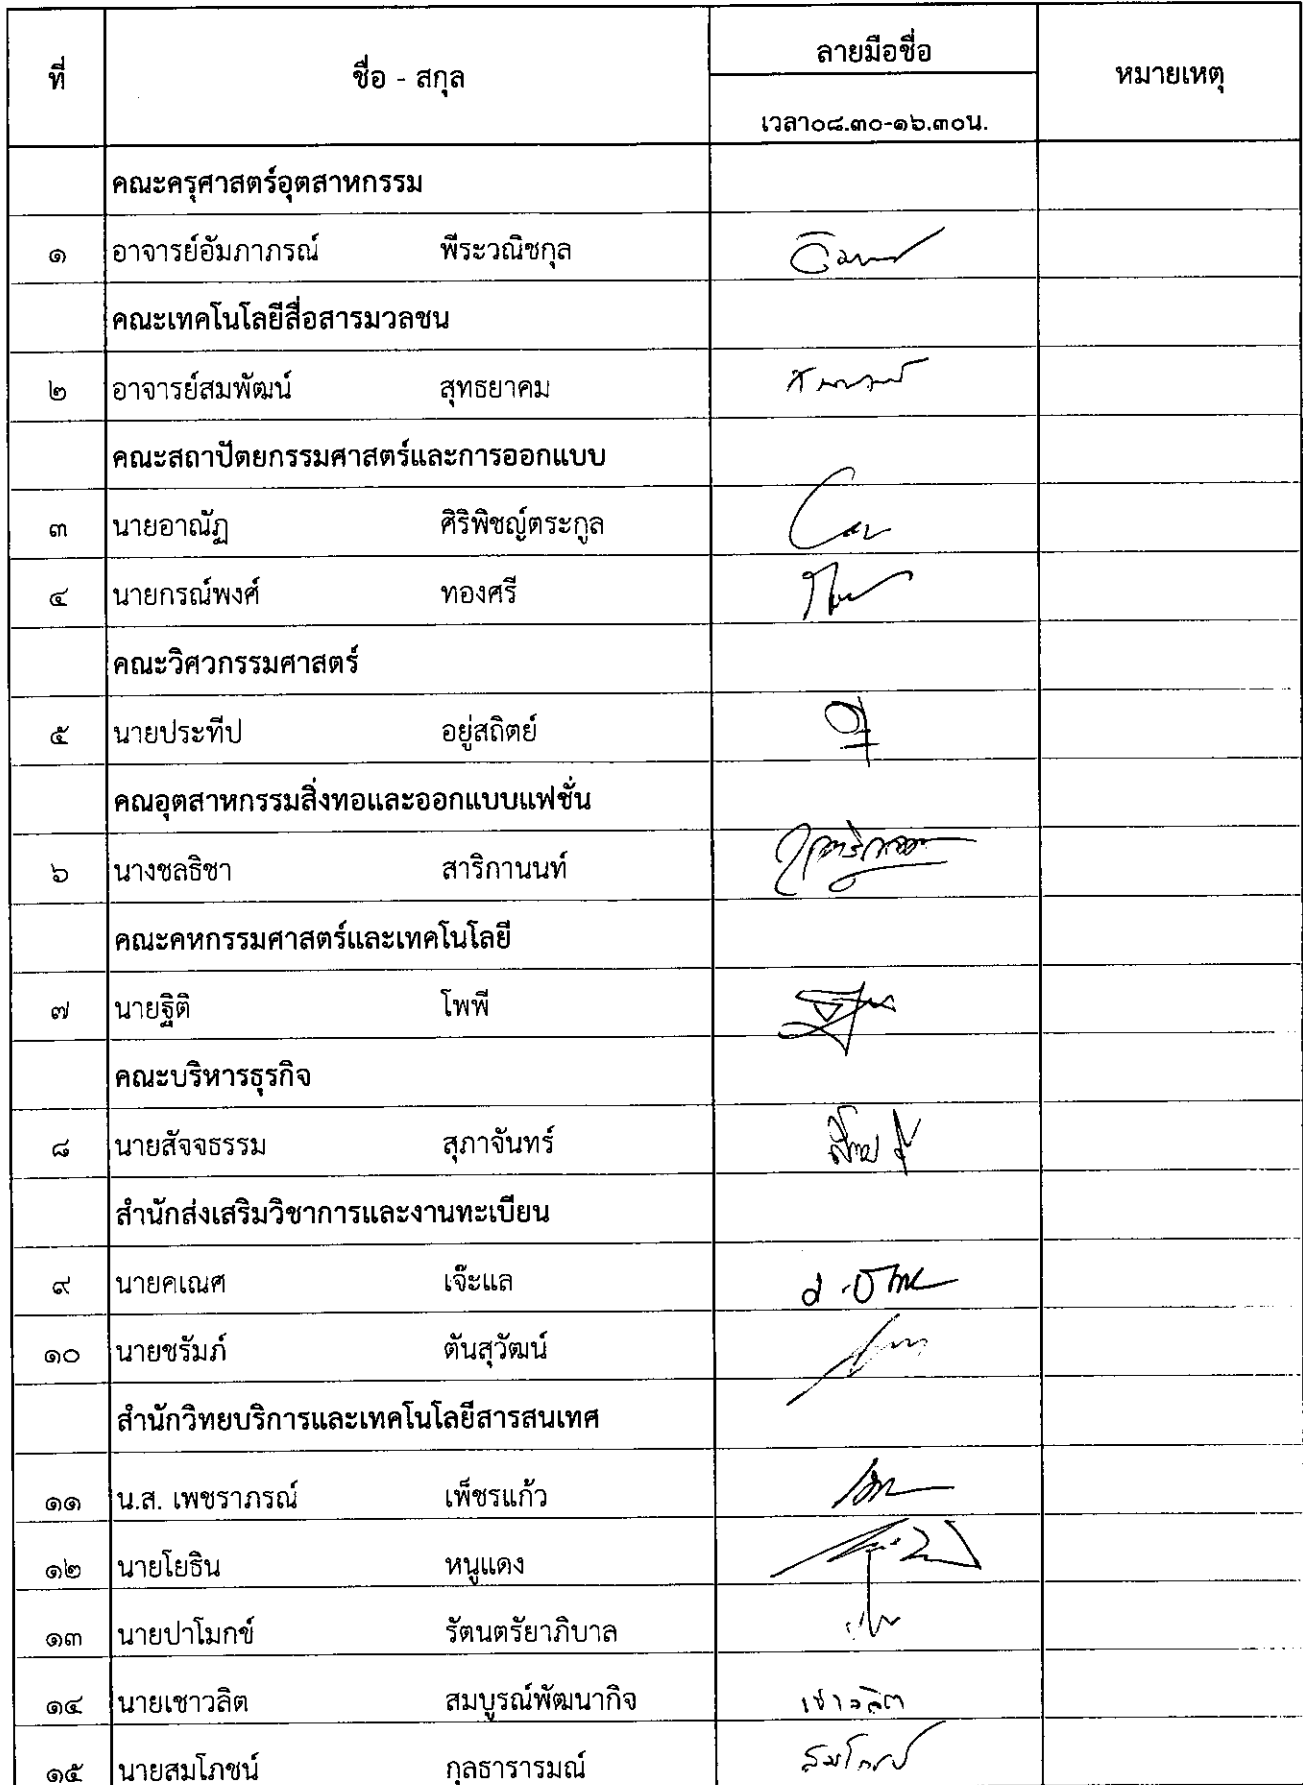 ที่ ชื่อ - สกุล ลายมือชื่อ หมายเหตุ
เวลา๐๘.๓๐-๑๖.๓๐น.
คณะครุศาสตร์อุตสาหกรรม
๑ อาจารย์อัมภาภรณ์ พีระวณิชกุล
คณะเทคโนโลยีสื่อสารมวลชน
๒ อาจารย์สมพัฒน์ สุทธยาคม
คณะสถาปัตยกรรมศาสตร์และการออกแบบ
๓ นายอาณัฏ ศิริพิชญ์ตระกูล
๔ นายกรณ์พงศ์ ทองศรี
คณะวิศวกรรมศาสตร์
๕ นายประทีป อยู่สถิตย์
คณอุตสาหกรรมสิ่งทอและออกแบบแฟชั่น
๖ นางชลธิชา สาริกานนท์
คณะคหกรรมศาสตร์และเทคโนโลยี
๗ นายฐิติ โพพี
คณะบริหารธุรกิจ
๘ นายสัจจธรรม สุภาจันทร์
สำนักส่งเสริมวิชาการและงานทะเบียน
๙ นายคเณศ เจ๊ะแล
๑๐ นายชรัมภ์ ตันสุวัฒน์
สำนักวิทยบริการและเทคโนโลยีสารสนเทศ
๑๑ น.ส. เพชราภรณ์ เพ็ชรแก้ว
๑๒ นายโยธิน หนูแดง
๑๓ นายปาโมกข์ รัตนตรัยาภิบาล
๑๔ นายเชาวลิต สมบูรณ์พัฒนากิจ เชาวลิต
๑๕ นายสมโภชน์ กุลธารารมณ์ สมโภชน์